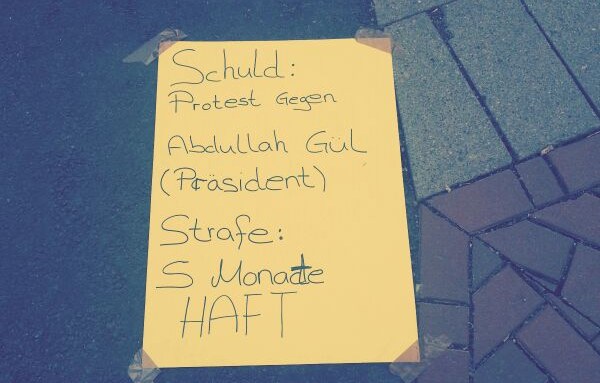 Schuld:
Protest Gegen
Abdullah Gül
(Präsident)
Strafe:
5 Monate
HAFT